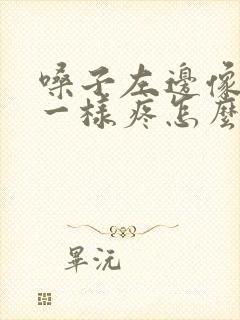 嗓子左邊像
一樣疼怎麼
畢沅